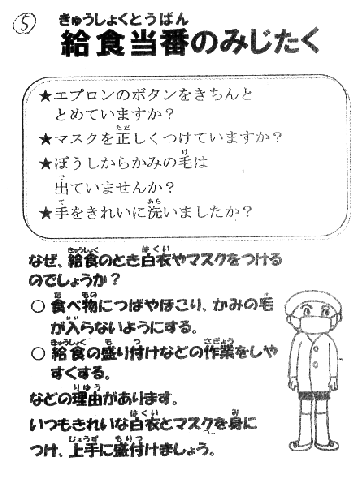 ⑤
きゅうしょくとうばん
給食当番のみじたく
★エプロンのボタンをきちんと
とめていますか?
★マスクを正しくつけていますか?
★ぼうしからかみの毛は
出ていませんか?
★手をきれいに洗いましたか?
なぜ、給食のとき白衣やマスクをつける
のでしょうか?
○ 食べ物につばやほこり、かみの毛
が入らないようにする。
○ 給食の盛り付けなどの作業をしや
すくする。
などの理由があります。
いつもきれいな白衣とマスクを身に
つけ、上手に盛付けましょう。